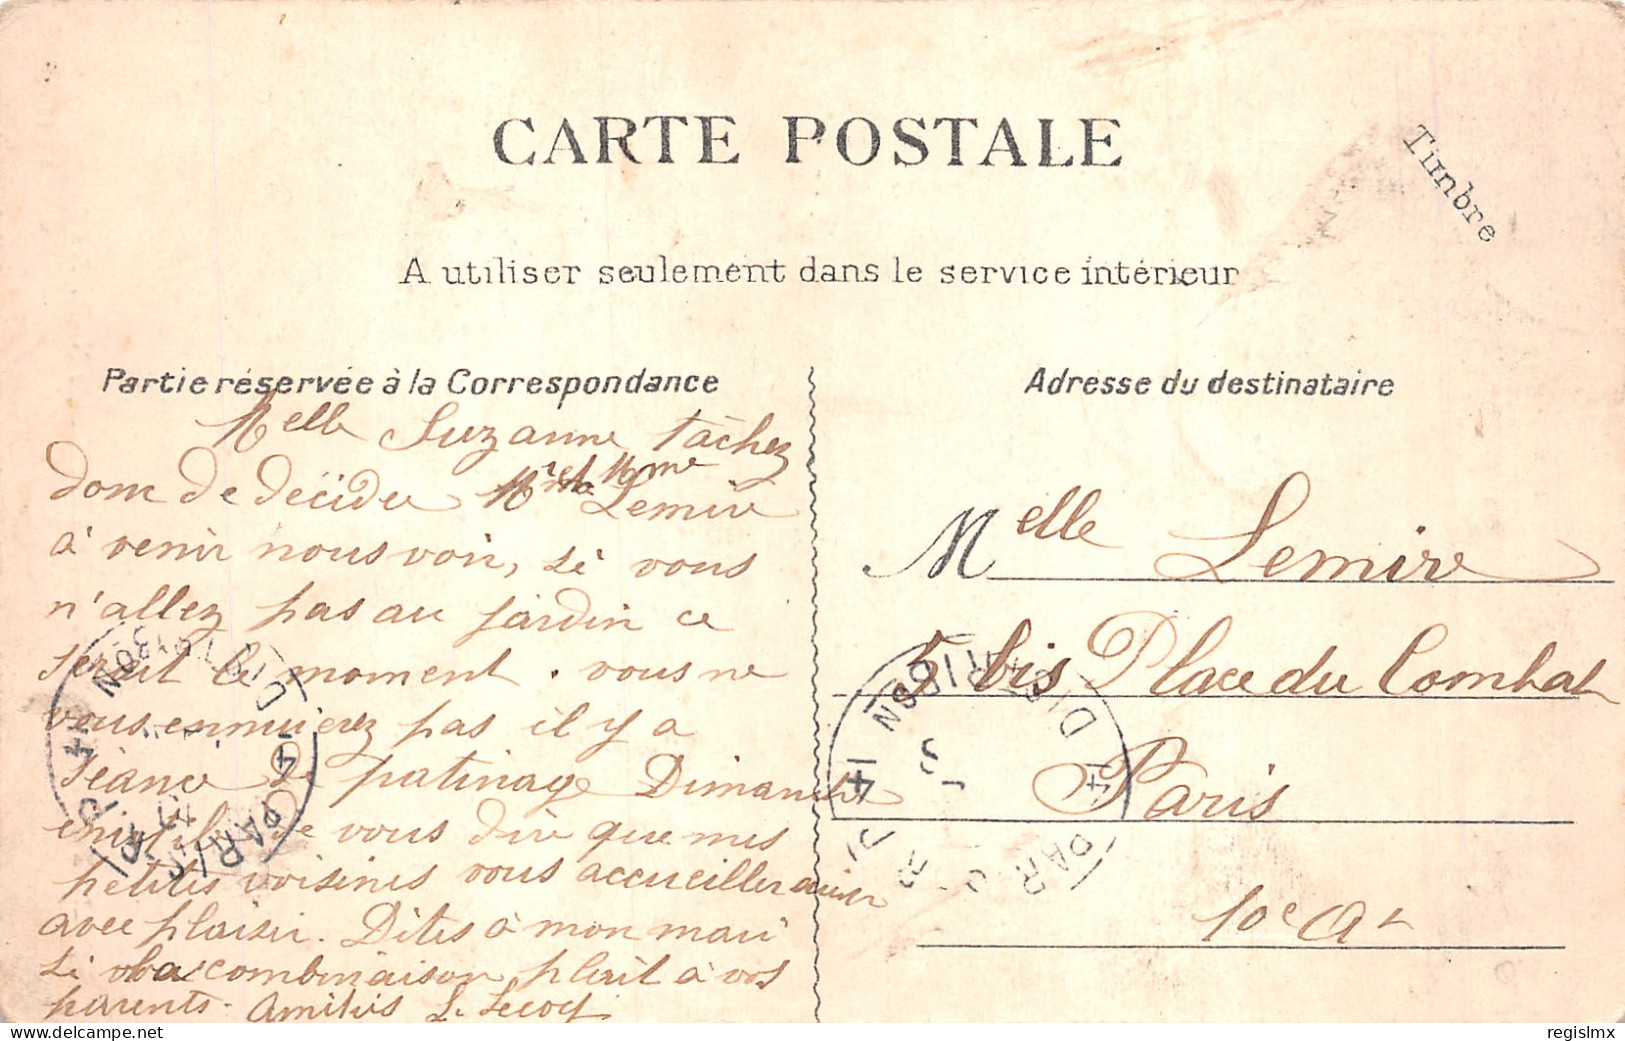 CARTE POSTALE
Timbre
A utiliser seulement dans le service intérieur
Partie réservée à la Correspondance
Melle Suzanne tâchez
donc de décider Mr et Mme Lemire
à venir nous voir, si vous
n'allez pas au jardin ce
serait le moment. vous ne
vous ennuierez pas il y a
séance de patinage Dimanche
vous dire que mes
petites voisines vous accueilleraient
avec plaisir. Dites à mon mari
si la combinaison plait à vos
parents. Amitiés L. Lecocq
Adresse du destinataire
Melle Lemire
5 bis Place du Combat
Paris
10e Ar
PARIS DISTRIBON
PARIS DISTRIBON
41
regislmx
delcampe.net